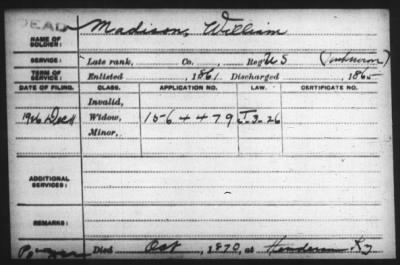 DEAD
Madison, William
NAME OF SOLDIER:
SERVICE: Late rank, Co. , Reg't U S (unknown)
TERM OF SERVICE: Enlisted , 1861 Discharged , 1865
DATE OF FILING. CLASS. APPLICATION NO. LAW. CERTIFICATE NO.
Invalid,
1926 Dec 4 Widow, 1564479 J.3.26
Minor,
ADDITIONAL SERVICES:
REMARKS:
Died Oct , 1870, at Henderson Ky